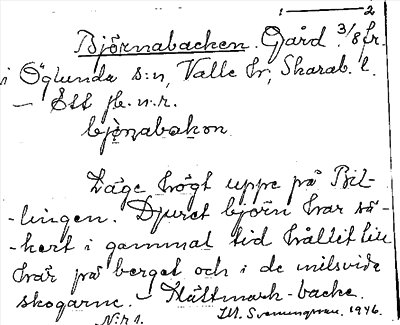 1 — 2
Björnabacken. Gård 3/8 fr.
i Öglunda s:n, Valle hr, Skarab. l.
— Ett jb. n:r.
bjönabakon
Läge högt uppe på Bil-
-lingen. Djuret björn har sä-
-kert i gammal tid hållit till
här på berget och i de milsvida
skogarne. — Slättmark - backe.
N:r 1.
1946.